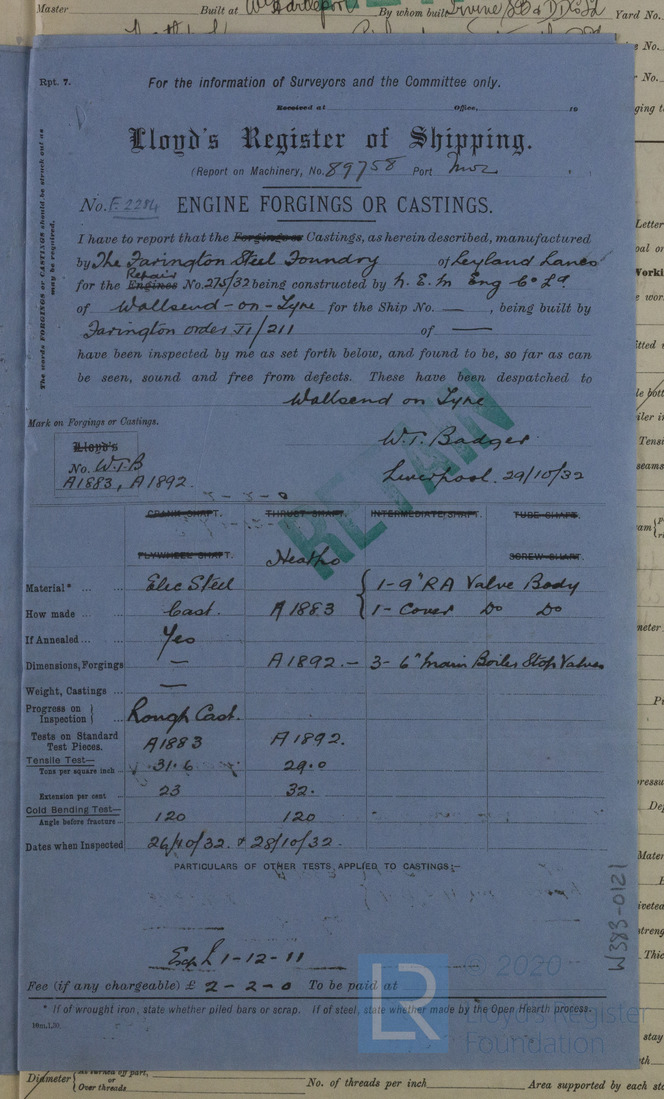 Master Built at W. Hartlepool By whom built Irvine SB & DD Co Ld Yard No.
Rpt. 7.
For the information of Surveyors and the Committee only.
Received at Office, 19
Lloyd's Register of Shipping.
(Report on Machinery, No. 89758 Port
No. F. 2284 ENGINE FORGINGS OR CASTINGS.
The words FORGINGS or CASTINGS should be struck out as may be required.
I have to report that the Forgings or Castings, as herein described, manufactured
by The Farington Steel Foundry of Leyland Lancs
Repair
for the Engines No. 275/32 being constructed by N. E. M Eng Co Ld
of Wallsend-on-Tyne for the Ship No. — , being built by
Farington order T1/211 of —
have been inspected by me as set forth below, and found to be, so far as can
be seen, sound and free from defects. These have been despatched to
Wallsend on Tyne
Mark on Forgings or Castings.
W.T. Badger
Lloyd's
No. W.T.B
A1883, A1892
Liverpool. 29/10/32
RETAIN
2 - 2 - 0
CRANK SHAFT. THRUST SHAFT. INTERMEDIATE SHAFT. TUBE SHAFT.
FLYWHEEL SHAFT. Heat No SCREW SHAFT.
Material* Elec Steel 1-9" RA Valve Body
How made Cast. A1883 1- Cover Do Do
If Annealed Yes
Dimensions, Forgings — A1892.- 3- 6" Main Boiler Stop Valves
Weight, Castings —
Progress on Inspection Rough Cast.
Tests on Standard Test Pieces. A1883 A1892.
Tensile Test—
Tons per square inch 31.6 29.0
Extension per cent 23 32.
Cold Bending Test—
Angle before fracture 120 120
Dates when Inspected 26/10/32. & 28/10/32.
PARTICULARS OF OTHER TESTS APPLIED TO CASTINGS:-
W383-0121
Exp £ 1-12-11
Fee (if any chargeable) £ 2-2-0 To be paid at
* If of wrought iron, state whether piled bars or scrap. If of steel, state whether made by the Open Hearth process.
10m,1,30.
© 2020
LR
Lloyd's Register
Foundation
Diameter as turned off part, or Over threads No. of threads per inch Area supported by each